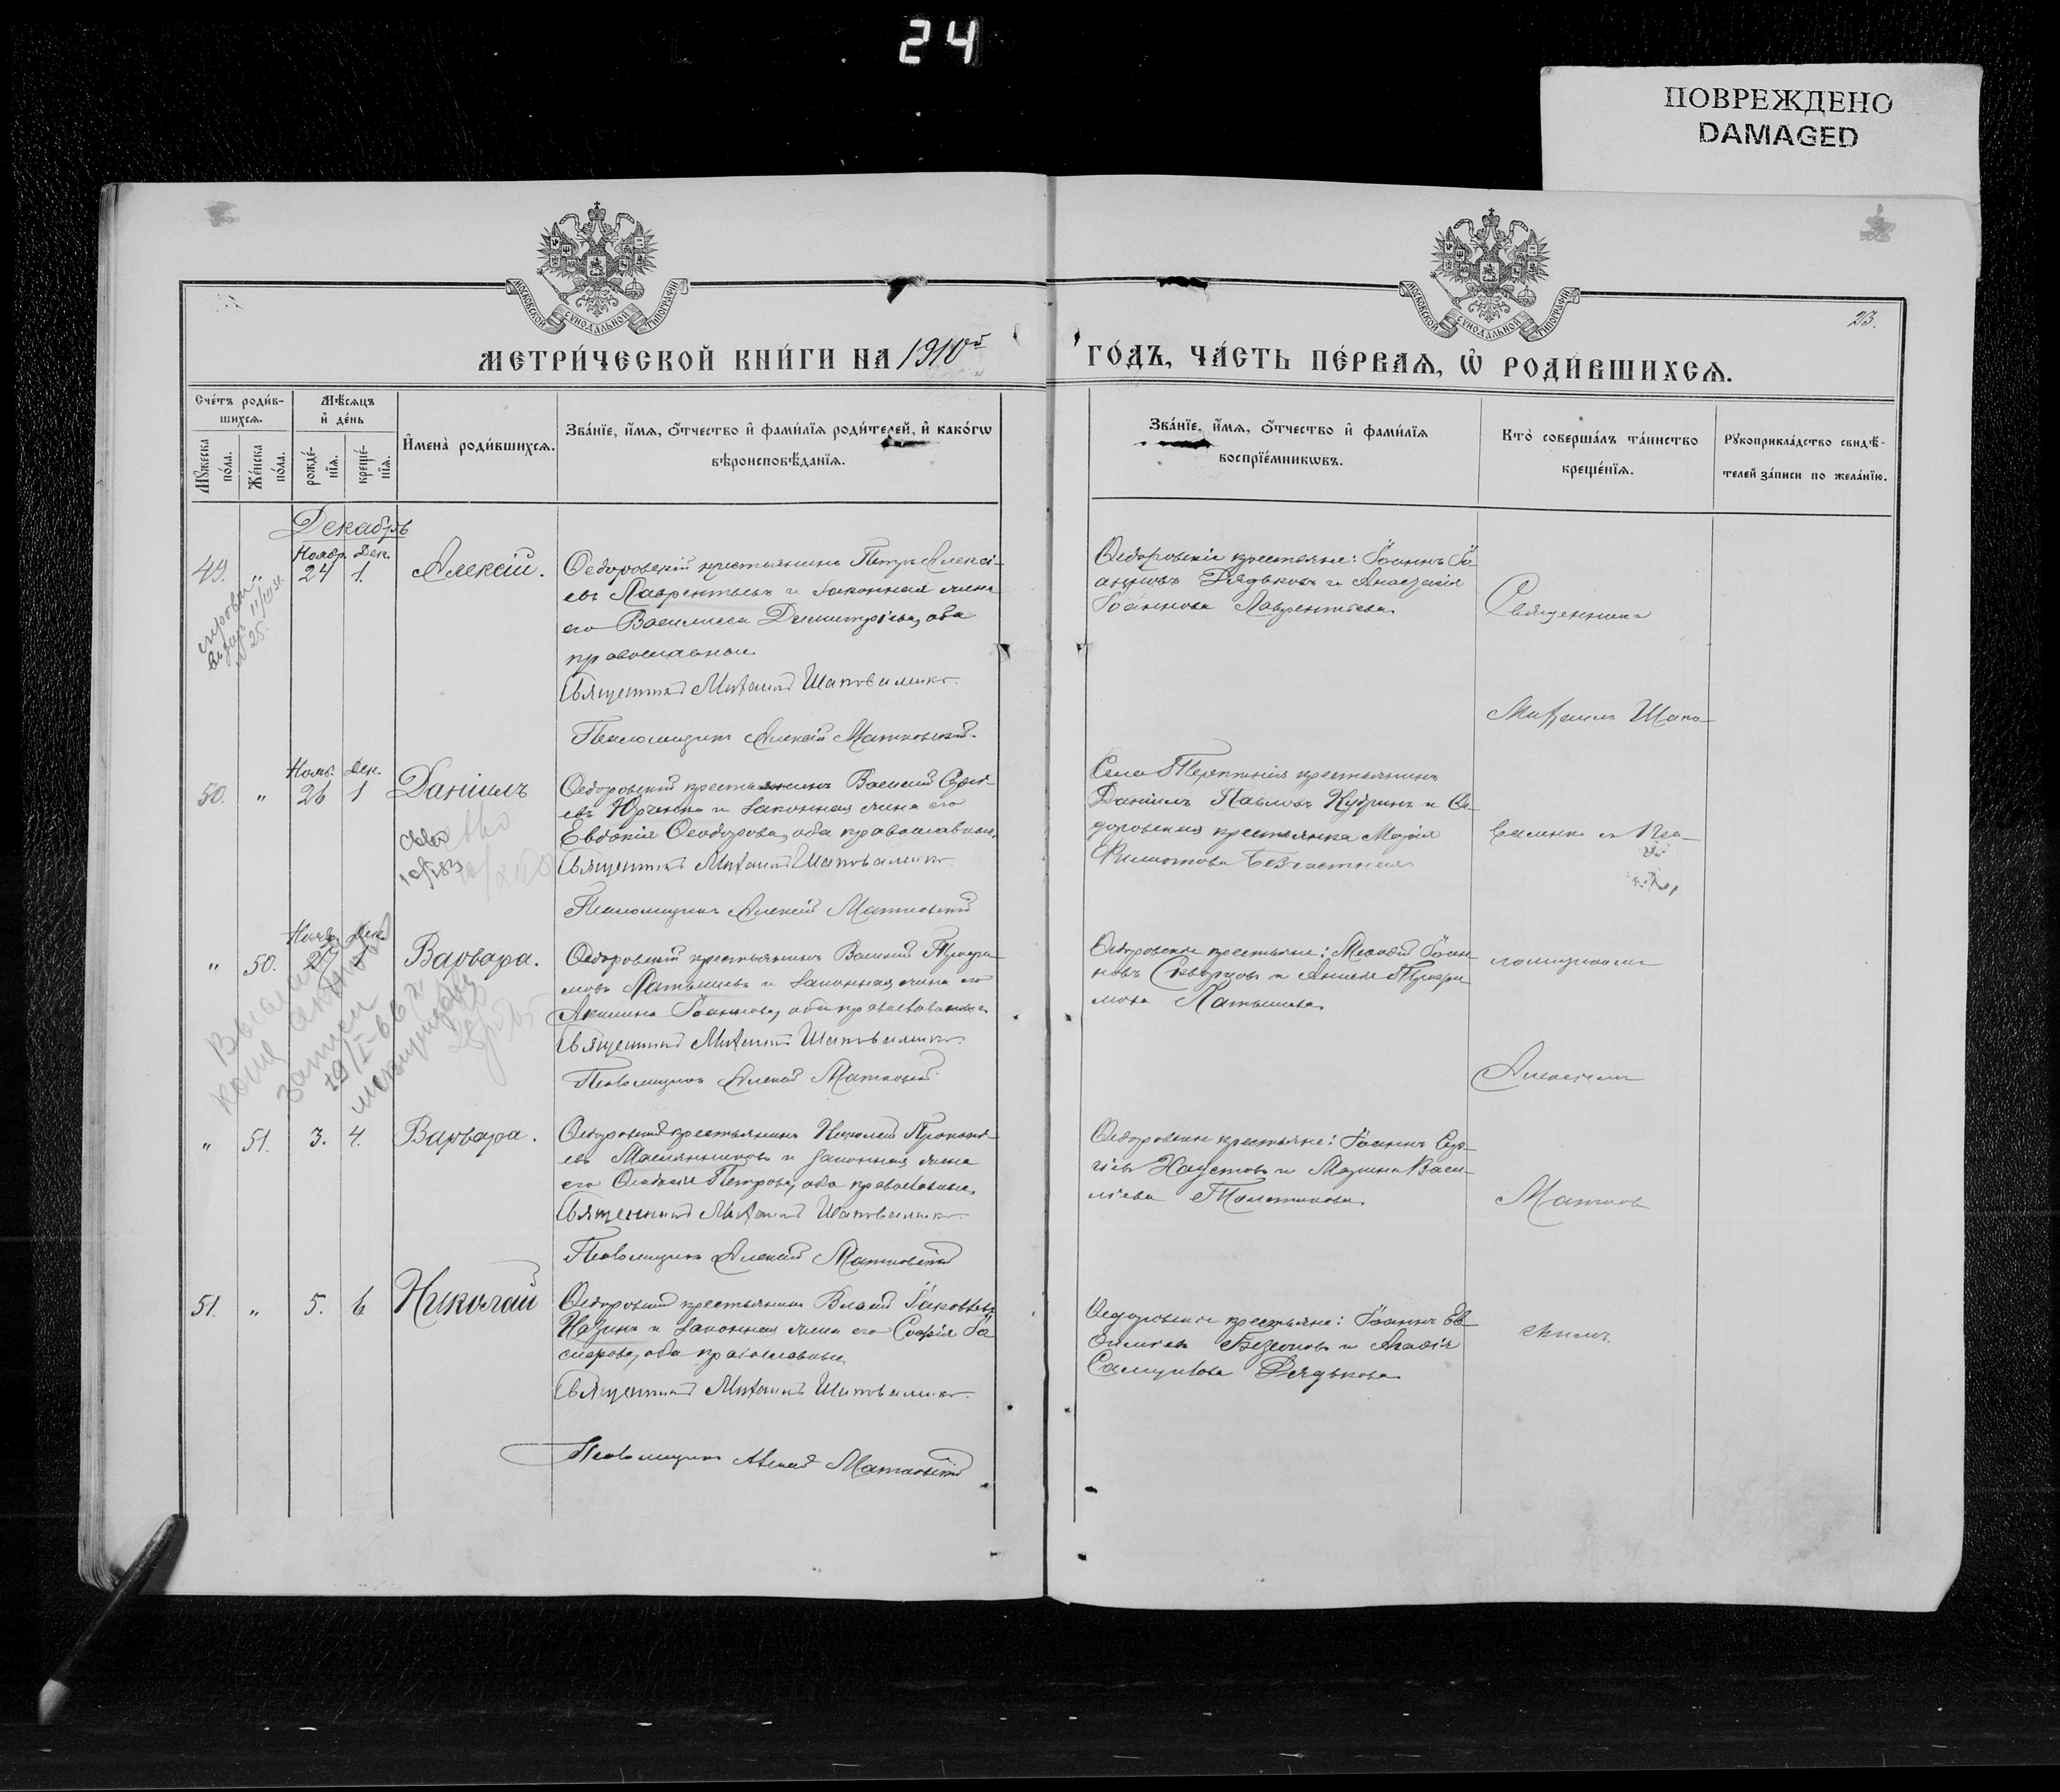 24
ПОВРЕЖДЕНО
DAMAGED
МОСКОВСКОЙ СѴНОДАЛЬНОЙ ТИПОГРАФІИ
МОСКОВСКОЙ СѴНОДАЛЬНОЙ ТИПОГРАФІИ
23.
МЕТРИ́ЧЕСКОЙ КНИ́ГИ НА 1910й
ГО́ДЪ, ЧА́СТЬ ПЕ́РВАѦ, Ѡ҆ РОДИ́ВШИХСѦ.
Сче́тъ роди́в-
шихсѧ.
Мꙋжеска по́ла.
Же́нска по́ла.
Мѣ́сѧцъ
и҆ де́нь
рожде́-
нїѧ.
креще́-
нїѧ.
И҆мена̀ роди́вшихсѧ.
Зва́нїе, и҆́мѧ, ѻ҆́тчество и҆ фами́лїѧ роди́телей, и҆ како́гѡ
вѣроисповѣ́данїѧ.
Зва́нїе, и҆́мѧ, ѻ҆́тчество и҆ фами́лїѧ
воспрїе́мникѡвъ.
Кто̀ соверша́лъ та́инство
креще́нїѧ.
Рꙋкоприкла́дство свидѣ́-
телей за́писи по жела́нїю.
Декабрь
Ноябр. Дек.
49. " 24 1. Алексій.
Ѳедоровскій крестьянинъ Петръ Алексі-
евъ Лаврентьевъ и законная жена
его Василисса Димитріева, оба
православные
Священникъ Михаилъ Шаповаленко.
Псаломщикъ Алексій Матковскій.
Ѳедоровскіе крестьяне: Іоаннъ Іо-
анновъ Дядьковъ и Анастасія
Іоаннова Лаврентьева.
Священникъ
Михаилъ Шапо-
№ 25.
Нояб. Дек.
50. " 26 1 Даніилъ
Ѳедоровскій крестьянинъ Василій Сергі-
евъ Юрченко и законная жена его
Евдокія Ѳеодорова, оба православные.
Священникъ Михаилъ Шаповаленко.
Псаломщикъ Алексій Матковскій
Села крестьянинъ
Даніилъ Павловъ Кудринъ и Ѳе-
доровская крестьянка Марія
Филиппова Безчастная.
валенко и Пса-
Нояб. Дек.
" 50. 27 1 Варвара.
Ѳедоровскій крестьянинъ Василій
мовъ Латышевъ и законная жена его
Акилина Іоаннова, оба православные.
Священникъ Михаилъ Шаповаленко.
Псаломщикъ Алексій Матковскій
Ѳедоровскіе крестьяне: Меѳодій Іоан-
новъ Скворцовъ и
мова Латышева.
ломщикомъ
Алексіемъ
Выдана
копия актовой
записи
19/I-66 г
" 51. 3. 4. Варвара.
Ѳедоровскій крестьянинъ Николай Прокопі-
евъ Масленниковъ и законная жена
его Ѳеодосія Петрова, оба православные.
Священникъ Михаилъ Шаповаленко.
Псаломщикъ Алексій Матковскій
Ѳедоровскіе крестьяне: Іоаннъ Сер-
гіевъ Наустовъ и Марина Васи-
ліева Толстикова.
Матков-
51. " 5. 6 Николай
Ѳедоровскій крестьянинъ Власій Іаковлевъ
Назинъ и законная жена его Софія Га-
оба православные.
Священникъ Михаилъ Шаповаленко.
Псаломщикъ Алексій Матковскій
Ѳедоровскіе крестьяне: Іоаннъ Ев-
и Агаѳія
Самуилова Дядькова
скимъ.